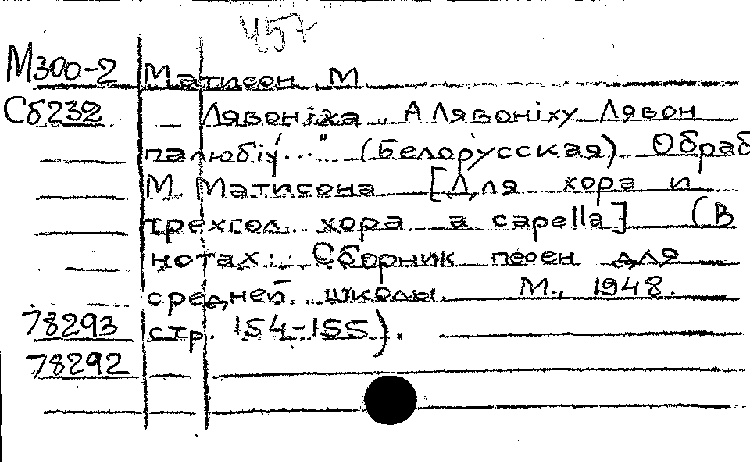 457
М300-2 Матисон М.
Сб232 Лявонiха. „А Лявонiху Лявон
палюбiў..." (Белорусская) Обраб
М. Матисона [Для хора и
трехгол. хора a capella] (В
нотах: Сборник песен для
средней школы. М., 1948.
78293 стр. 154-155).
78292